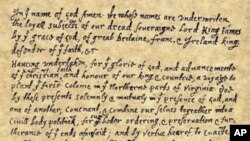 In yͤ name of god Amen. We whose names are underwriten,
the loyall subjects of our dread soveraigne Lord King James
by yͤ grace of god, of great Britaine, franc, & Ireland king,
defender of yͤ faith, &c
Haveing undertaken, for yͤ glorie of god, and advancemente
of yͤ christian faith and honour of our king & countrie, a voyage to
plant yͤ first colonie in yͤ Northerne parts of Virginia. Doe
by these presents solemnly & mutualy in yͤ presence of god, and
one of another, Covenant, & combine our selves togeather into a
civill body politick; for our better ordering, & preservation & fur=
therance of yͤ ends aforesaid; and by vertue hearof to Enacte
AP